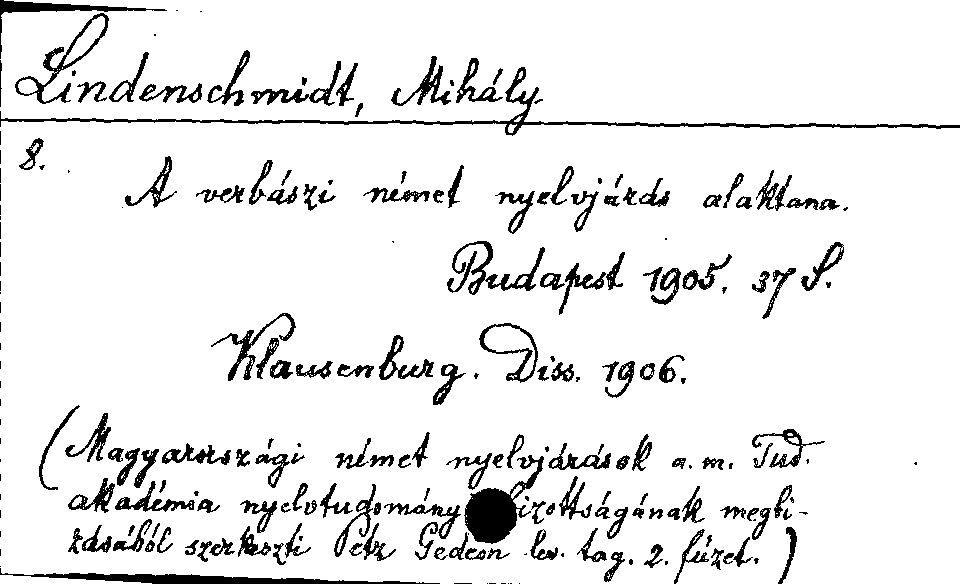 Lindenschmidt, Mihály
8.
A verbászi német nyelvjárás alaktana.
Budapest 1905. 37 S.
Klausenburg. Diss. 1906.
(Magyarországi német nyelvjárások a. m. Tud.
akadémia nyelvtudomány bizottságának megbi-
zásából szerkeszti Petz Gedeon lev. tag. 2. füzet.)